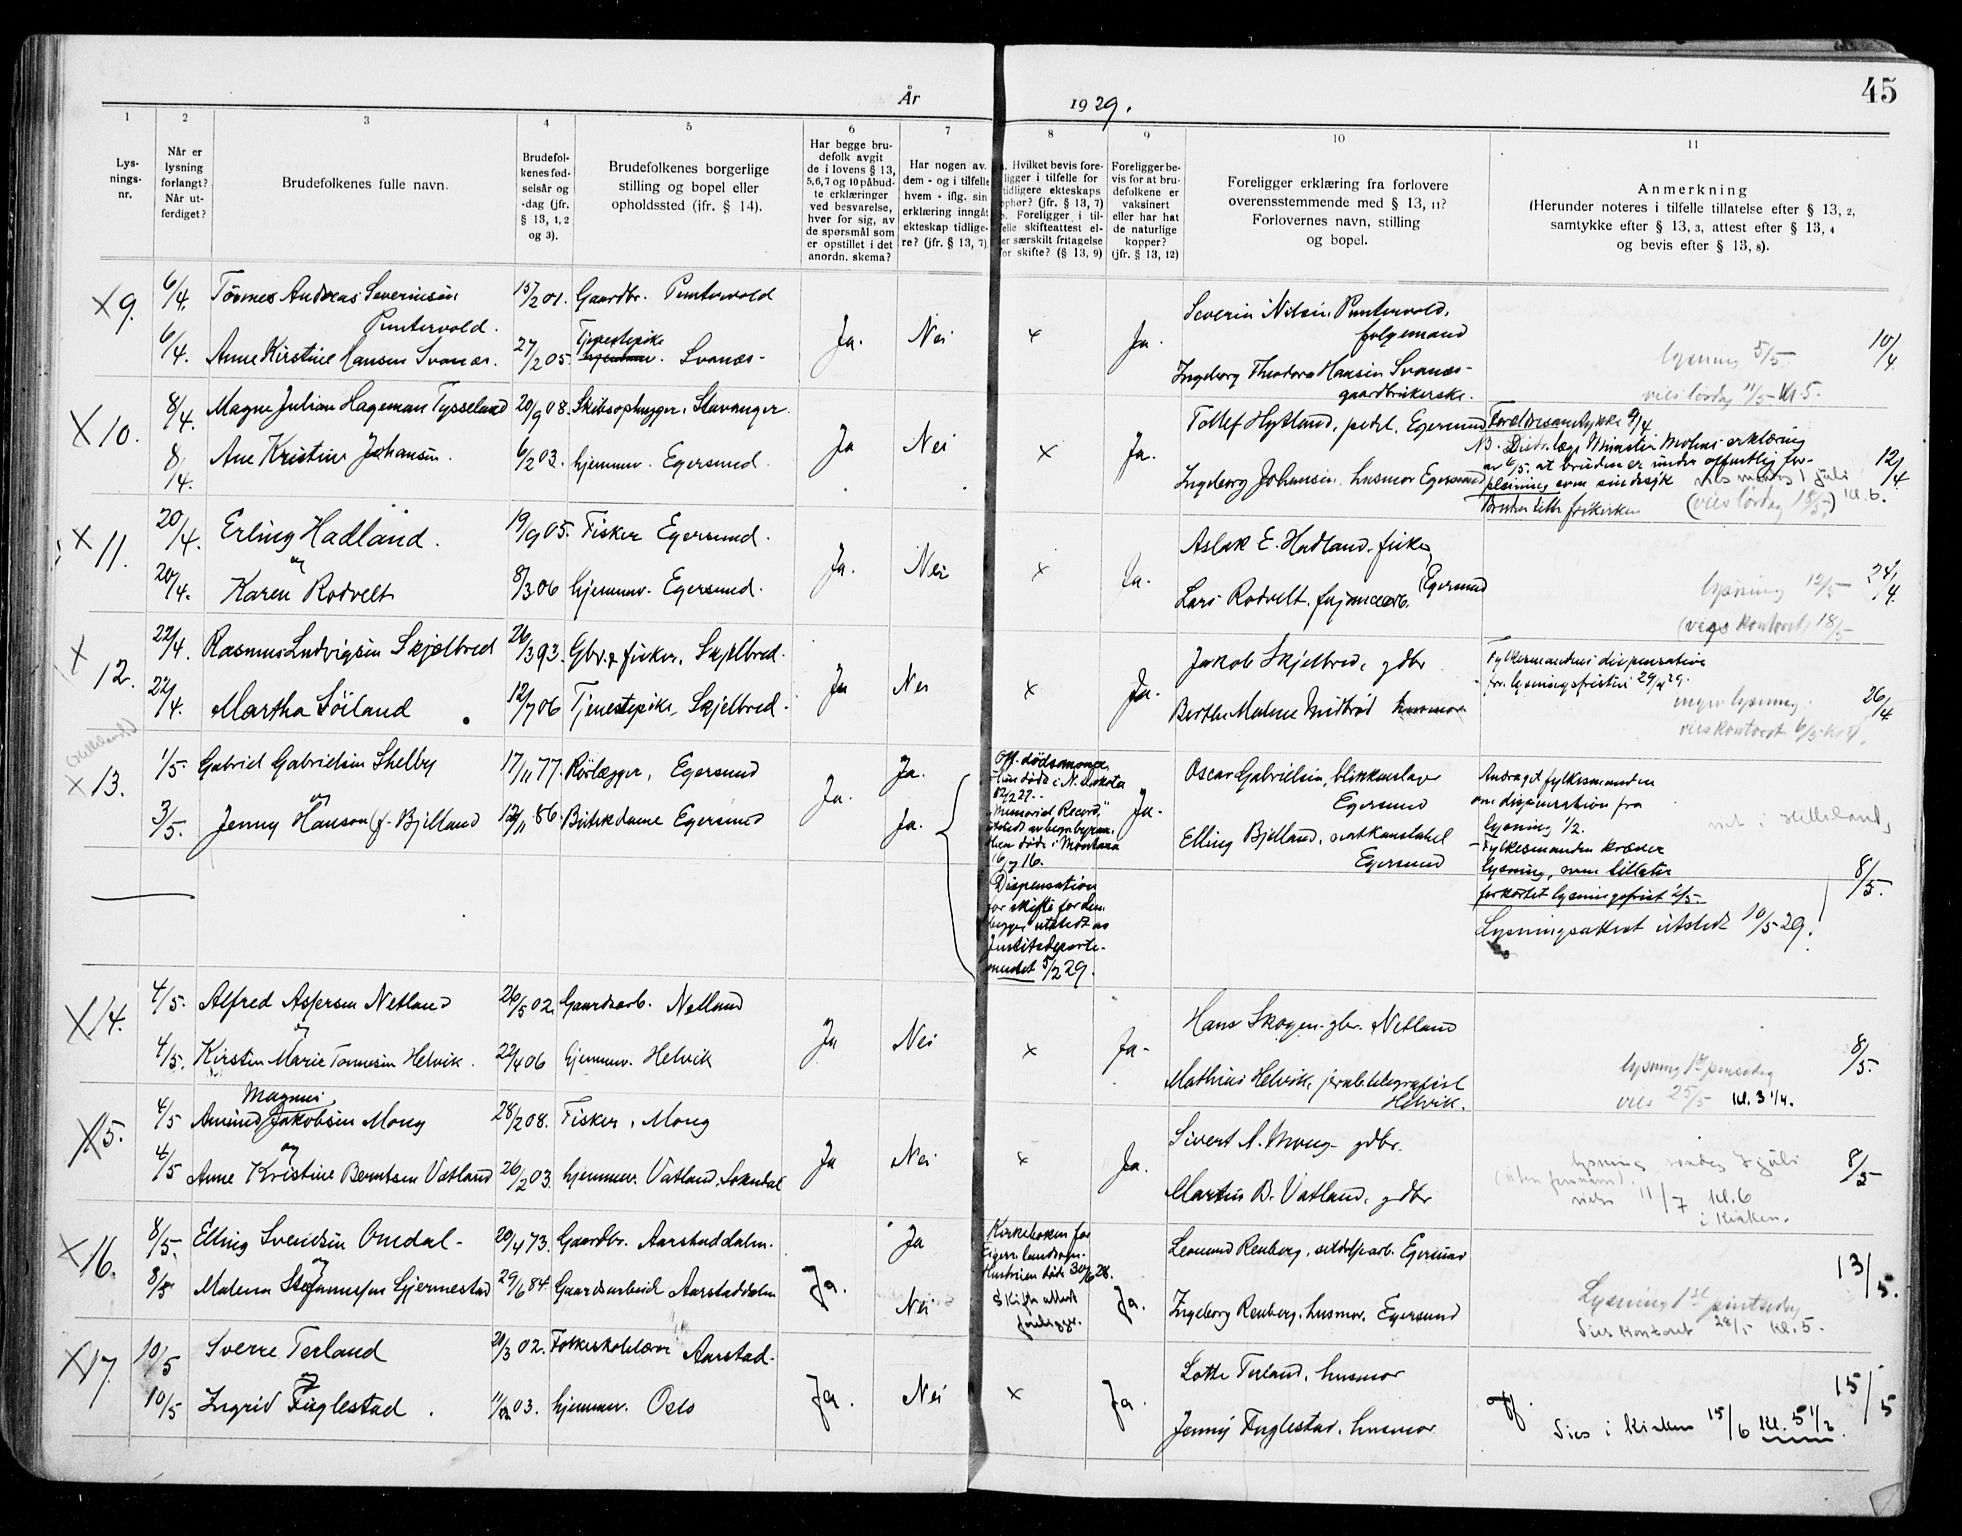 År 1929.
45
1 2 3 4 5 6 7 8 9 10 11
Lysningsnr.
Når er lysning forlangt? Når utferdiget?
Brudefolkenes fulle navn.
Brudefolkenes fødselsår og -dag (jfr. § 13, 1, 2 og 3).
Brudefolkenes borgerlige stilling og bopel eller opholdssted (ifr. § 14).
Har begge brudefolk avgit de i lovens § 13, 5, 6, 7 og 10 påbudte erklæringer ved besvarelse, hver for sig, av de spørsmål som er opstillet i det anordn. skema?
Har nogen av dem - og i tilfelle hvem - iflg. sin erklæring inngått ekteskap tidligere? (jfr. § 13, 7)
Hvilket bevis foreligger i tilfelle for tidligere ekteskaps ophør? (jfr. § 13, 7) Foreligger i tilfelle skifteattest eller særskilt fritagelse for skifte? (§ 13, 9)
Foreligger bevis for at brudefolkene er vaksinert eller har hat de naturlige kopper? (jfr. § 13, 12)
Foreligger erklæring fra forlovere overensstemmende med § 13, 11? Forlovernes navn, stilling og bopel.
Anmerkning
(Herunder noteres i tilfelle tillatelse efter § 13, 2, samtykke efter § 13, 3, attest efter § 13, 4 og bevis efter § 13, 8).
X 9. 6/4. Tønnes Andreas Severinsen 15/2 01. Gaardbr. Puntervold Severin Nilsen Puntervold,
Puntervold. folgemand 10/4
6/4. Anne Kirstine Hansen Svanæs. 27/2 05. Tjenestepike Svanæs - Ja. Nei x Ja. lysning 5/5.
Ingeborg Theodora Hansen Svanæs - gaardbrukerske. vies lørdag 11/5 Kl 5.
X 10. 8/4. Magne Julian Hageman Tysseland 20/9 08. Skibsophugger, Stavanger. Tollef Hytland, pedel, Egersund Foreldresamtykke 9/4
Ja Nei x Ja. 12/4
8/4. Ane Kristine Johansen. 6/2 03. hjemmev. Egersund. Ingeborg Johansen husmor Egersund
av 6/5. at bruden er under offentlig forpleining som sindssyk
(vies lørdag 18/5) kl. 6.
X 11. 20/4. Erling Hadland. 19/9 05. Fisker Egersund. Aslak E. Hadland. fisker
og Ja. Nei x Ja. Egersund 24/4.
20/4. Karen Rodvelt 8/3 06 hjemmev. Egersund. Lars Rodvelt. lysning 12/5
(vies kontoret) 18/5
X 12. 22/4. Rasmus Ludvigsen Skjelbred 26/3 93. Gbr. & fisker, Skjelbred. Jakob Skjelbred, gdbr Fylkesmandens dispensation
Ja Nei x Ja. for lysningsfristen 29/4 29.
22/4. Martha Søiland 12/7 06 Tjenestepike, Skjelbred. Berthe Malene Midbrød husmor ingen lysning. 26/4
vies kontoret 6/5 kl 4.
X 13. 1/5. Gabriel Gabrielsen Shelby 17/11 77. Rørlægger, Egersund Ja. Oscar Gabrielsen, blikkenslager Egersund
og Ja. Ja.
3/5. Jenny Hanson (f. Bjelland 12/11 86. Butikdame Egersund Ja. Elling Bjelland, Egersund
Hun døde i N. Dakota
"Memorial Record"
døde i Montana
Dispensation
for skifte for dem
begge utstedt av
Justitsdepartementet 5/2 29.
Andraget fylkesmanden
om dispensation fra
lysning 1/2.
- Fylkesmanden kræver
lysning, men tillater
forkortet lysningsfrist 2/5.
Lysningsattest utstedt 10/5 29.
8/5.
X 14. 4/5. Alfred Aspersen Netland 26/5 02. Gaardsarb. Netland Hans Skogen. gbr. Netland
og Ja Nei x Ja. 8/5.
4/5. Kirsten Marie Tønnesen Helvik. 22/4 06 hjemmev. Helvik Mathias Helvik, Helvik. lysning 1ste pinsedag
vies 25/5 Kl. 3 1/4.
X 15. 4/5 Amund Magnus Jakobsen Mong 28/2 08. Fisker, Mong Sivert A. Mong - gdbr.
og Ja Nei x Ja. lysning søndag 7 juli 8/5
4/5 Anne Kristine Berntsen Vatland 26/2 03. hjemmev. Vatland, Sokndal Martin B. Vatland, gdbr 11/7 kl. 6
i Kirken.
X 16. 8/5. Elling Svendsen Omdal - 20/4 73. Gaardbr. Aarstaddalen. Ja Kirkeboken for Leonard Renberg, Egersund
og Ja. Egers. landsogn. 13/5.
8/5 Malena Stefanussen Gjermestad 29/6 84. Gaardsarbeid Aarstaddalen Nei Hustruen døde 30/6 28. Ja. Ingeborg Renberg, husmor, Egersund
Skifteattest foreligger.
Lysning 1ste pintsedag
Vies kontoret 28/5 kl. 5.
X 17. 10/5 Sverre Terland 21/3 02. Folkeskolelærer Aarstad. Lotte Terland, husmor
og Ja. Nei x Ja. 15/5
10/5 Ingrid Fuglestad. 03. hjemmev. Oslo Jenny Fuglestad, husmor
Vies i kirken 15/6 kl. 5 1/2.